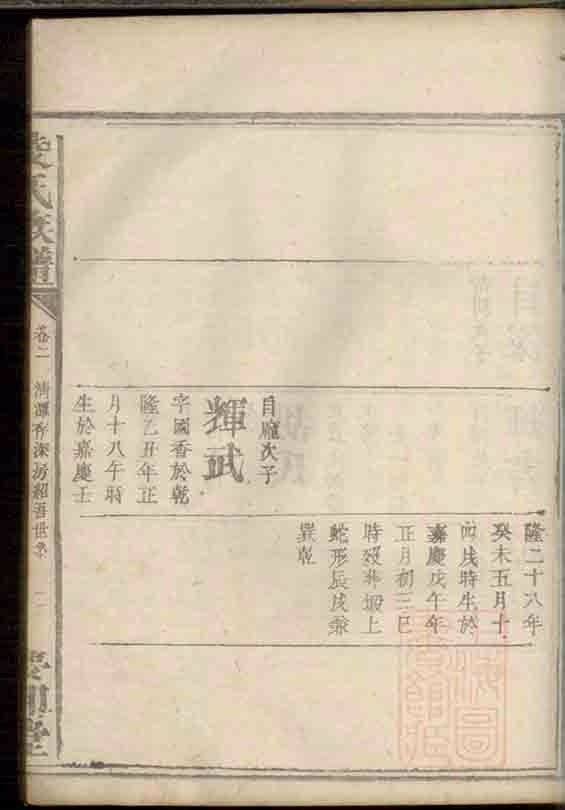 自龐次子
輝武
字國香於乾
隆乙丑年正
月十八午時
生於嘉慶壬
隆二十八年
癸未五月十
四戌時生於
嘉慶戊午年
正月初三巳
時歿葬塅上
蛇形辰戌兼
巽乾
氏族譜
卷二
清潭存深房紹吾世系